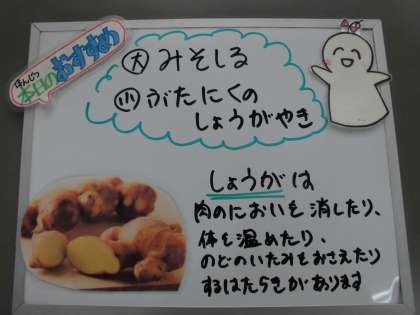 ほんじつ
本日のおすすめ
大 みそしる
小 ぶたにくの
しょうがやき
しょうがは
肉のにおいを消したり、
体を温めたり、
のどのいたみをおさえたり
するはたらきがあります